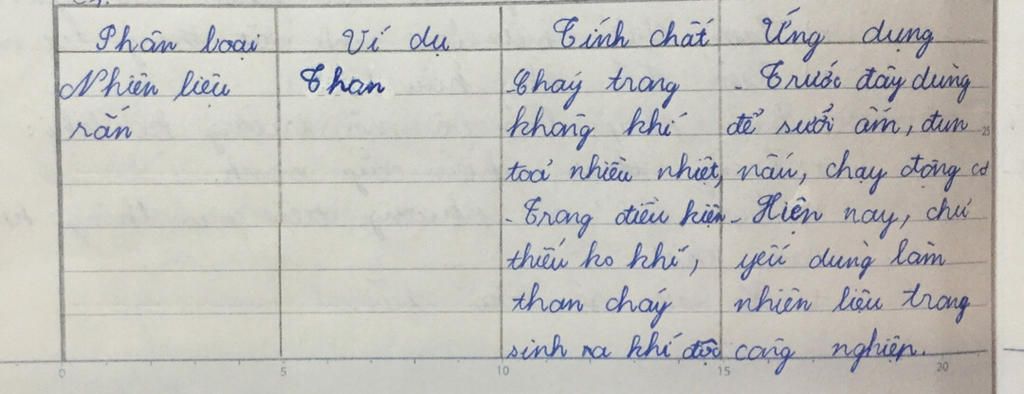 Phân loại Ví dụ Tính chất Ứng dụng
Nhiên liệu Than Cháy trong - Trước đây dùng
rắn không khí để sưởi ấm, đun
toả nhiều nhiệt, nấu, chạy động cơ
- Trong điều kiện - Hiện nay, chủ
thiếu ko khí, yếu dùng làm
than cháy nhiên liệu trong
sinh ra khí độc công nghiệp.
0 5 10 15 20
25